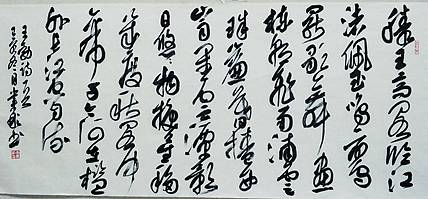 滕王高阁临江
渚佩玉鸣鸾
罢歌舞画
栋朝飞南浦云
珠帘暮捲西
山雨闲云潭影
日悠悠物换星移
几度秋阁中
帝子今何在槛
外长江空自流
王勃诗
冬月 书